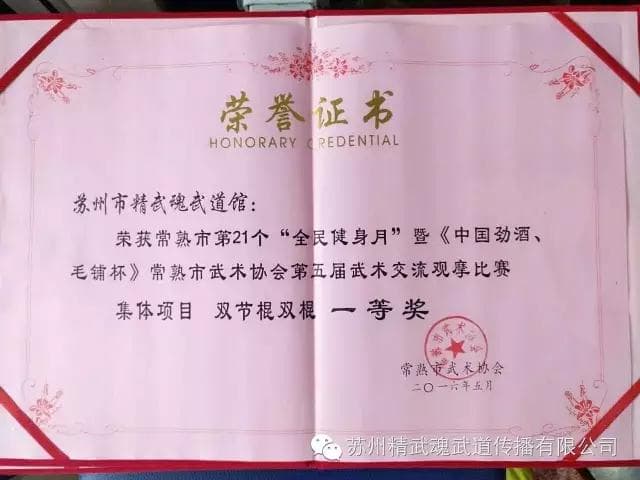 荣誉证书
HONORARY CREDENTIAL
苏州市精武魂武道馆：
荣获常熟市第21个“全民健身月”暨《中国劲酒、
毛铺杯》常熟市武术协会第五届武术交流观摩比赛
集体项目 双节棍双棍 一等奖
常熟市武术协会
常熟市武术协会
二〇一六年五月
苏州精武魂武道传播有限公司